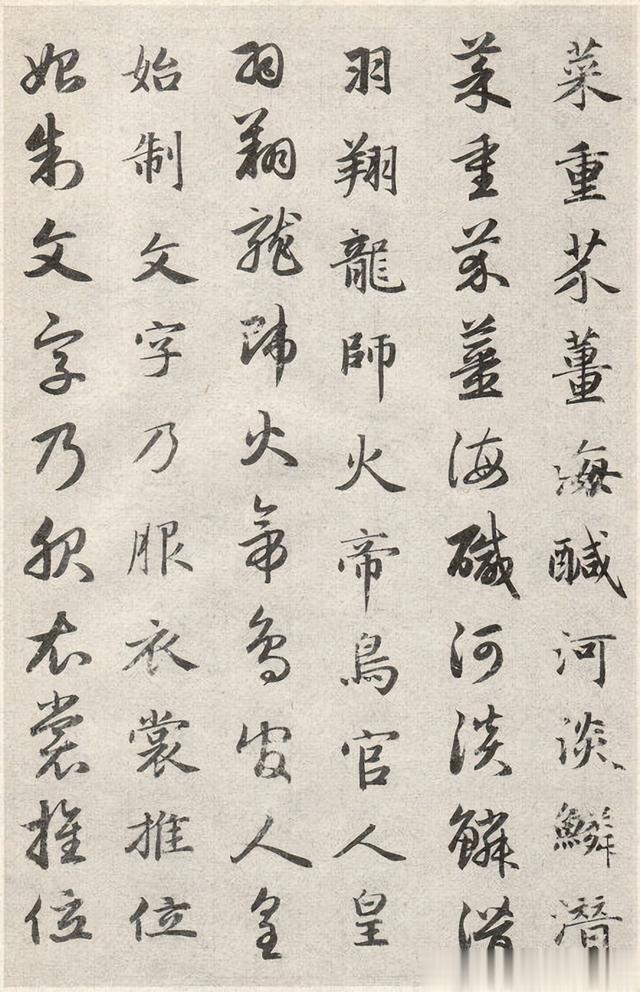 菜重芥薑海鹹河淡鱗潛
菜重芥薑海鹹河淡鱗潛
羽翔龍師火帝鳥官人皇
羽翔龍師火帝鳥官人皇
始制文字乃服衣裳推位
始制文字乃服衣裳推位